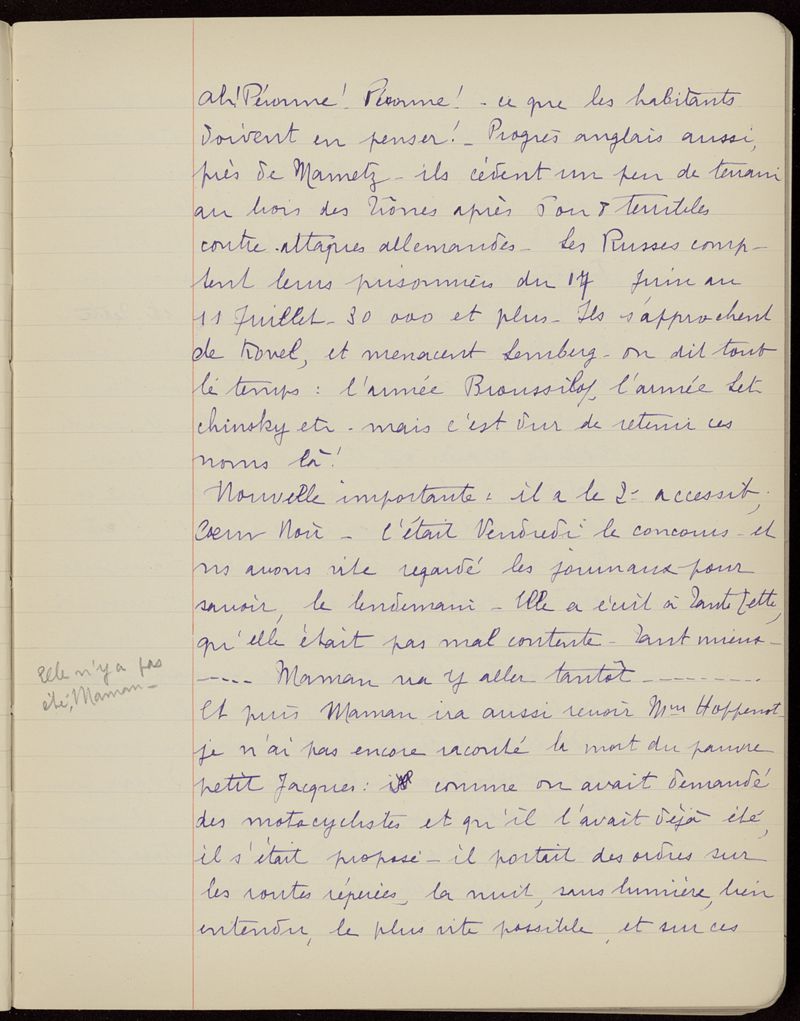 Ah! Péronne! Péronne! - ce que les habitants
doivent en penser! - Progrès anglais aussi,
près de Mametz - ils cèdent un peu de terrain
au bois des Trônes après 6 ou 7 terribles
contre-attaques allemandes - Les Russes comp-
tent leurs prisonniers du 17 Juin au
11 Juillet - 30 000 et plus - Ils s'approchent
de Kovel, et menacent Lemberg - on dit tout
le temps : l'armée Broussilof, l'armée Let-
chinsky etc - mais c'est dur de retenir ces
noms là!
Nouvelle importante : il a le 2e accessit,
Cœur Noir - C'était Vendredi le concours - et
ns avons vite regardé les journaux pour
savoir, le lendemain - Elle a écrit à Tante
qu'elle était pas mal contente - Tant mieux -
----- Maman va y aller tantôt ---------
Elle n'y a pas
été, Maman -
Et puis Maman ira aussi revoir Mme Hoppenot
je n'ai pas encore raconté la mort du pauvre
petit Jacques : comme on avait demandé
des motocyclistes et qu'il l'avait déjà été,
il s'était proposé - il portait des ordres sur
les routes repérées, la nuit, sans lumière, bien
entendu, le plus vite possible, et sur ces